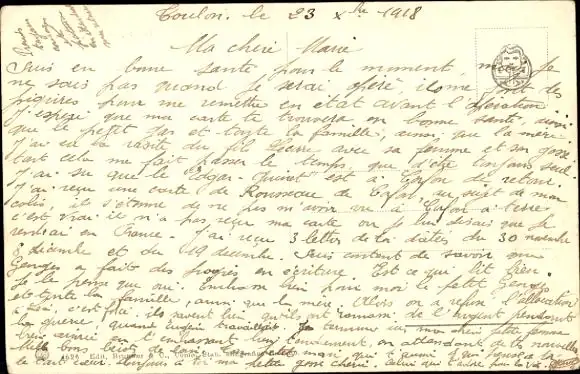 Toulon. le 23 Xbre 1918
Ma chère Marie
Suis en bonne santé pour le moment, mais je
ne sais pas quand je serai opéré, ils me font des
piqûres pour me remettre en état avant l'opération
J'espère que ma carte te trouvera en bonne santé, ainsi
que le petit gas et toute la famille, ainsi que la mère.
J'ai eu la visite du fils Pierre avec sa femme et son gosse
tout cela me fait passer le temps, que d'être toujours seul.
J'ai su que le "Edgar-Quinet" est à Corfou de retour.
J'ai reçu une carte de Rousseau de Corfou au sujet de mon
colis, il s'étonne de ne pas m'avoir vu à Corfou à terre
c'est vrai il n'a pas reçu ma carte où je lui disais que je
rentrai en France - J'ai reçu 3 lettres de toi datées du 30 novembre
décembre et du 19 décembre. Suis content de savoir que
Georges a fait des progrès en écriture Est ce que lit bien
je le pense que oui. Embrasse bien pour moi le petit Georges
et toute la famille, ainsi que la mère. Alors on a refusé l'allocation
à c'est folie, ils savent bien qu'ils ont ramassé de l'argent pendant
la guerre, quand Eugène travaillait. Je termine ma chère petite femme
bien aimée en t'embrassant bien tendrement, en attendant de tes nouvelles
Mille bons baisers de loin petit mari qui t'aime et qui
le tout cœur. toujours à toi ma petite gosse chérie. Celui qui t'adore pour la vie.
4626 Edit. Brunner & C., Como